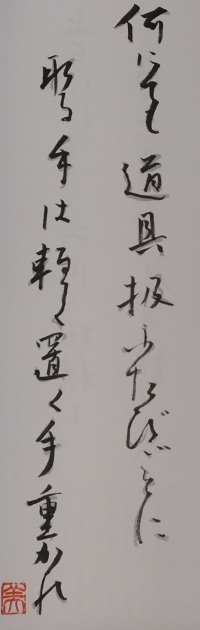 何にても道具扱ふたびごとに
取る手は軽く置く手重かれ